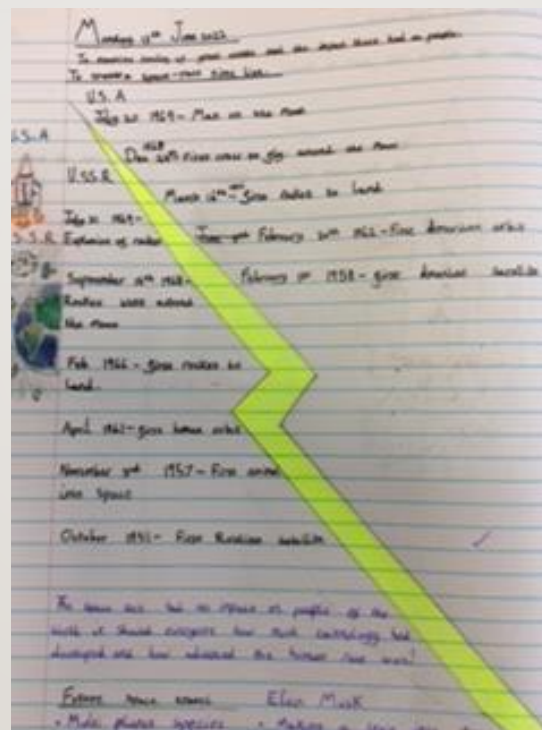 Monday 13th June 2022
To examine events of great and the impact these had on people.
To create a space-race time line.
U.S.A
July 20 1969 - Man on the Moon
Dec 24th 1968 First crew to fly around the Moon
U.S.S.R
March 16th first rocket to land
July 21 1969-
Explosion of rocket
February 20th 1962 - First American orbit
September 1968-
Rocket went around
the Moon
February 1st 1958 - first American satellite
Feb 1966 - first rocket to
land.
April 1961 - first human orbit
November 3rd 1957 - First animal
into Space
October 1951 - First Russian satellite
The space race had an impact on people of the
world it showed everyone how much technology had
developed and how advanced the human race was!
Future space travel
Elon Musk
• Multi planet species
• Making a
U.S.A
S.S.R